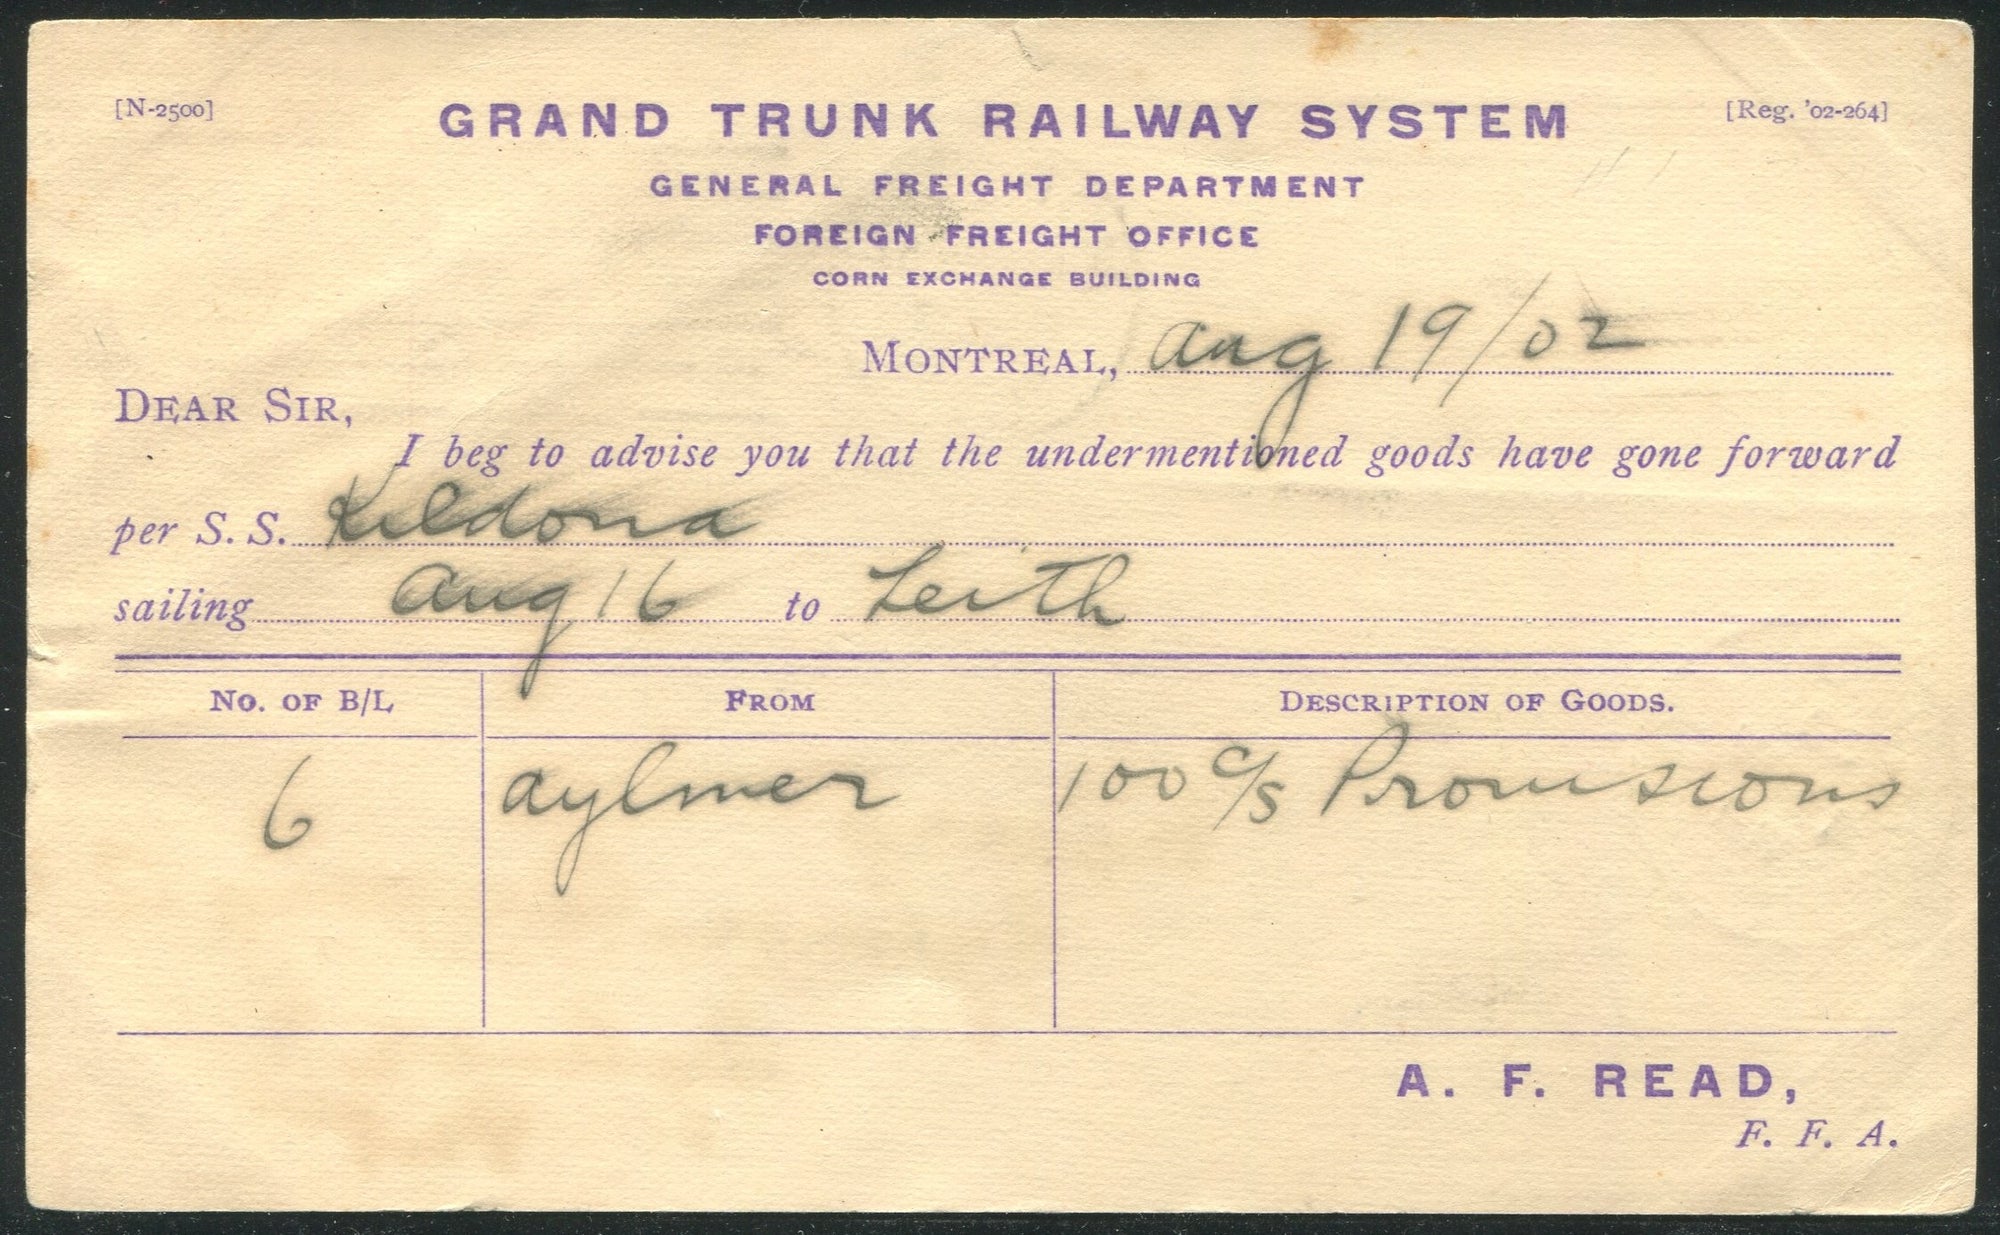 [N-2500]
GRAND TRUNK RAILWAY SYSTEM
[Reg. '02-264]
GENERAL FREIGHT DEPARTMENT
FOREIGN FREIGHT OFFICE
CORN EXCHANGE BUILDING
MONTREAL, Aug 19/02
DEAR SIR,
I beg to advise you that the undermentioned goods have gone forward
per S. S. Kildona
sailing Aug 16 to Leith
NO. OF B/L FROM DESCRIPTION OF GOODS.
6 Aylmer 100 c/s Provisions
A. F. READ,
F. F. A.